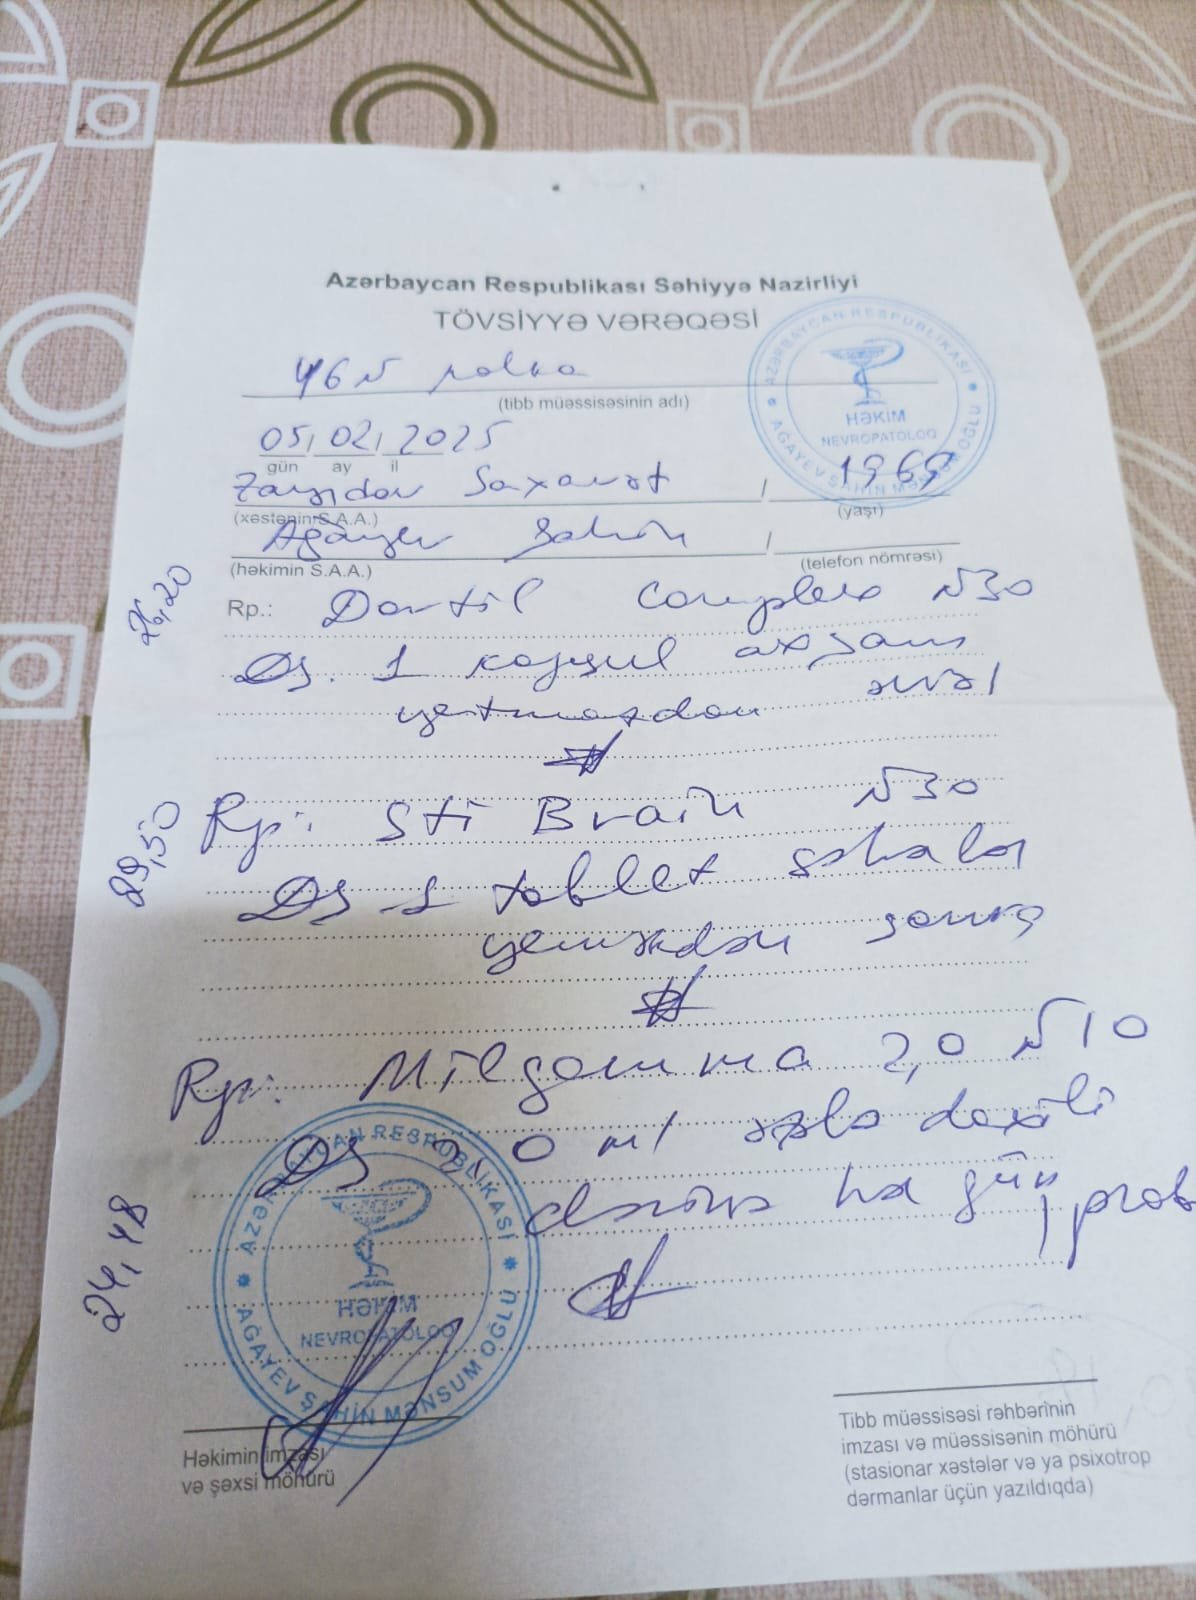 Azərbaycan Respublikası Səhiyyə Nazirliyi
TÖVSİYYƏ VƏRƏQƏSİ
46 N
(tibb müəssisəsinin adı)
05, 02, 2025
gün ay il
Saxavət / 1969
(xəstənin S.A.A.) (yaşı)
Ağayev Şahin /
(həkimin S.A.A.) (telefon nömrəsi)
AZƏRBAYCAN RESPUBLİKASI
HƏKİM
NEVROPATOLOQ
AĞAYEV ŞAHİN MƏNSUM OĞLU
26,20
Rp.: Complex N30
DS. 1 kapsul axşam
yatmazdan əvəl
29,50
Rp: Sti Brain N30
DS 1 tablet səhələr
yeməkdən sonra
Rp: Milgamma 2,0 N10
DS 2,0 ml əzələ daxili
hər gün, prob
24,48
AZƏRBAYCAN RESPUBLİKASI
HƏKİM
NEVROPATOLOQ
AĞAYEV ŞAHİN MƏNSUM OĞLU
Həkimin imzası
və şəxsi möhürü
Tibb müəssisəsi rəhbərinin
imzası və müəssisənin möhürü
(stasionar xəstələr və ya psixotrop
dərmanlar üçün yazıldıqda)